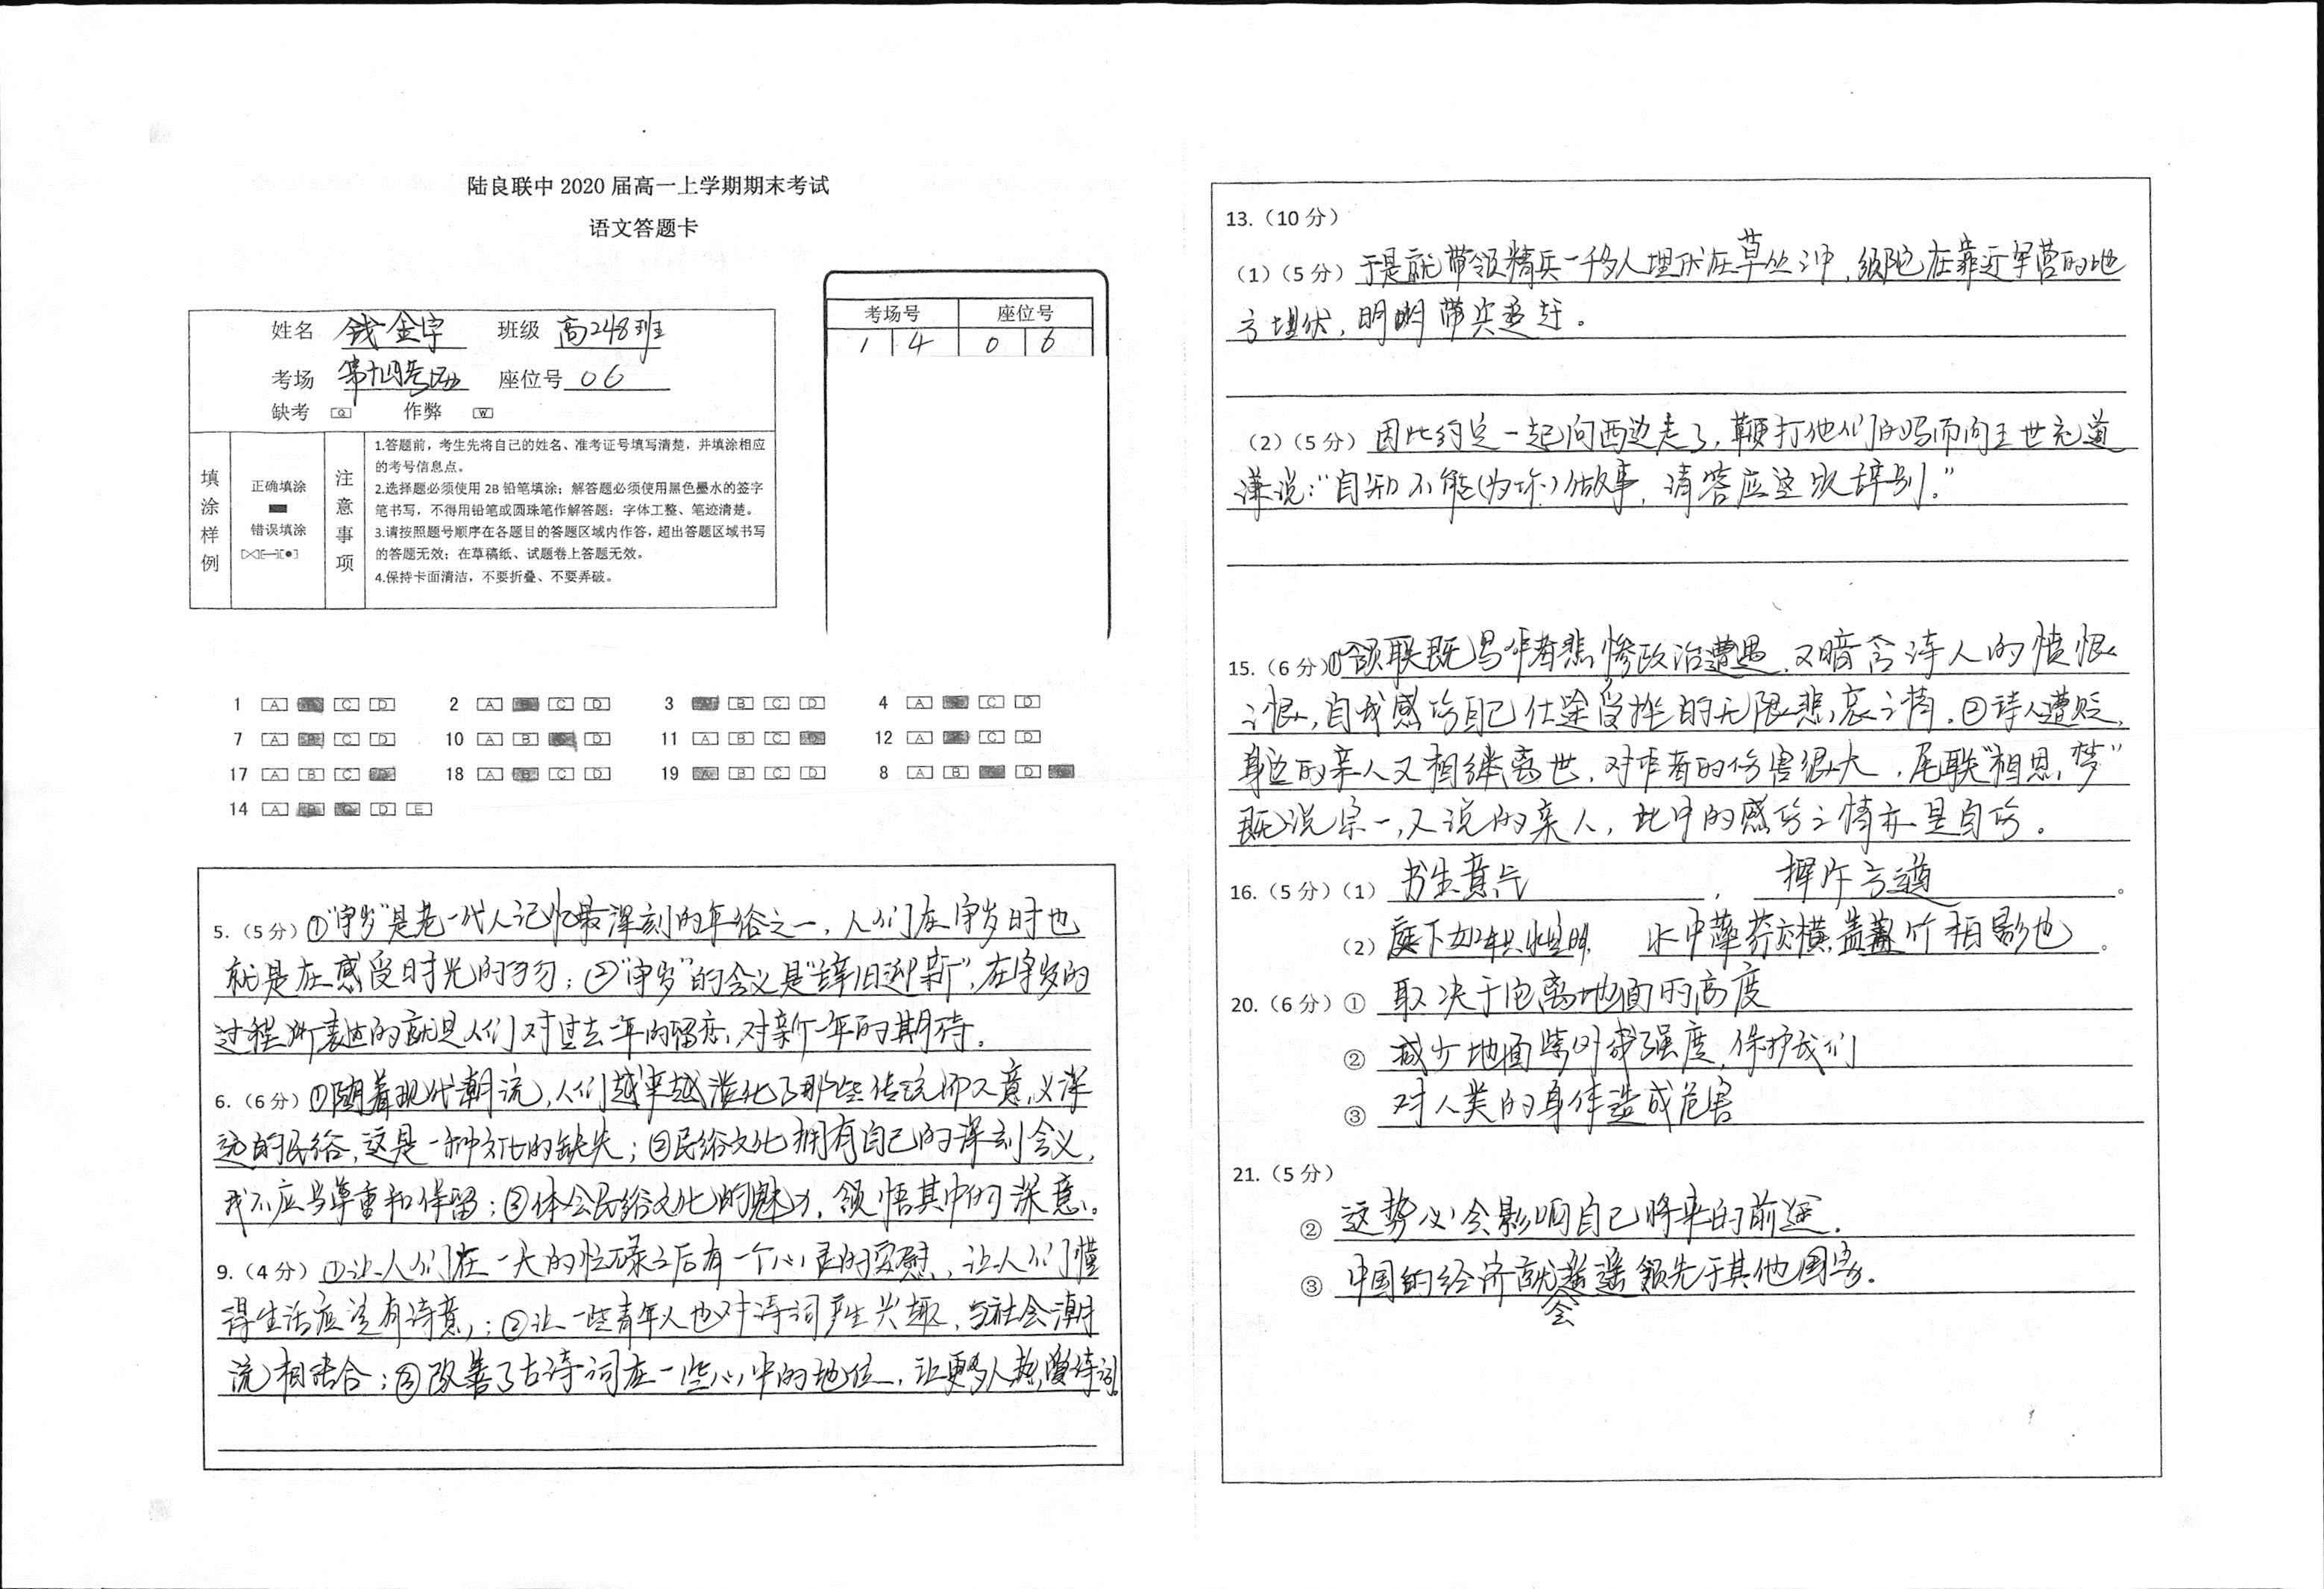 陆良联中2020届高一上学期期末考试
语文答题卡
姓名 钱金宇 班级 高248班
考场 第十四考场 座位号 06
缺考 [Q] 作弊 [W]
考场号 座位号
1 4 0 6
填涂样例
正确填涂
错误填涂
注意事项
1.答题前,考生先将自己的姓名、准考证号填写清楚,并填涂相应
的考号信息点。
2.选择题必须使用2B铅笔填涂;解答题必须使用黑色墨水的签字
笔书写,不得用铅笔或圆珠笔作解答题;字体工整、笔迹清楚。
3.请按照题号顺序在各题目的答题区域内作答,超出答题区域书写
的答题无效;在草稿纸、试题卷上答题无效。
4.保持卡面清洁,不要折叠、不要弄破。
1 [A] [C] [D] 2 [A] [C] [D] 3 [B] [C] [D] 4 [A] [C] [D]
7 [A] [C] [D] 10 [A] [B] [D] 11 [A] [B] [C] 12 [A] [C] [D]
17 [A] [B] [C] 18 [A] [C] [D] 19 [B] [C] [D] 8 [A] [B] [D]
14 [A] [D] [E]
5.(5分)①"守岁"是老一代人记忆最深刻的年俗之一,人们在守岁时也
就是在感受时光的;②"守岁"的含义是"辞旧迎新",在守岁的
过程所表达的就是人们对过去一年的留恋,对新一年的期待。
6.(6分)①随着现代潮流,人们越来越淡化了那些传统而又意义深
远的民俗,这是一种文化的缺失;②民俗文化拥有自己的深刻含义,
我们应当尊重和保留;③体会民俗文化的魅力,领悟其中的深意。
9.(4分)①让人们在一天的忙碌之后有一个心灵的安慰,让人们懂
得生活应该有诗意;②让一些青年人也对诗词产生兴趣,与社会潮
流相结合;③改善了古诗词在一些心中的地位,让更多人热爱诗词。
13.(10分)
(1)(5分)于是就带领精兵一千多人埋伏在草丛中,须陀在靠近军营的地
方埋伏,明带兵追赶。
(2)(5分)因此约定一起向西边走了,鞭打他们的吗而向王世充道
谦说:"自知不能(为你)做事,请答应这次辞别。"
15.(6分)①颔联既写作者悲惨政治遭遇,又暗含诗人的愤恨
之恨,自我感伤自己仕途受挫的无限悲哀之情。②诗人遭贬,
身边的亲人又相继离世,对作者的伤害很大,尾联"相思,梦"
既说宗一,又说的亲人,此中的感伤之情亦是自伤。
16.(5分)(1)书生意气,挥斥方遒。
(2)庭下如积水空明,水中藻荇交横,盖竹柏影也。
20.(6分)① 取决于它离地面的高度
② 减少地面紫外线强度,保护我们
③ 对人类的身体造成危害
21.(5分)
② 这势必会影响自己将来的前途。
③ 中国的经济就会遥遥领先于其他国家。